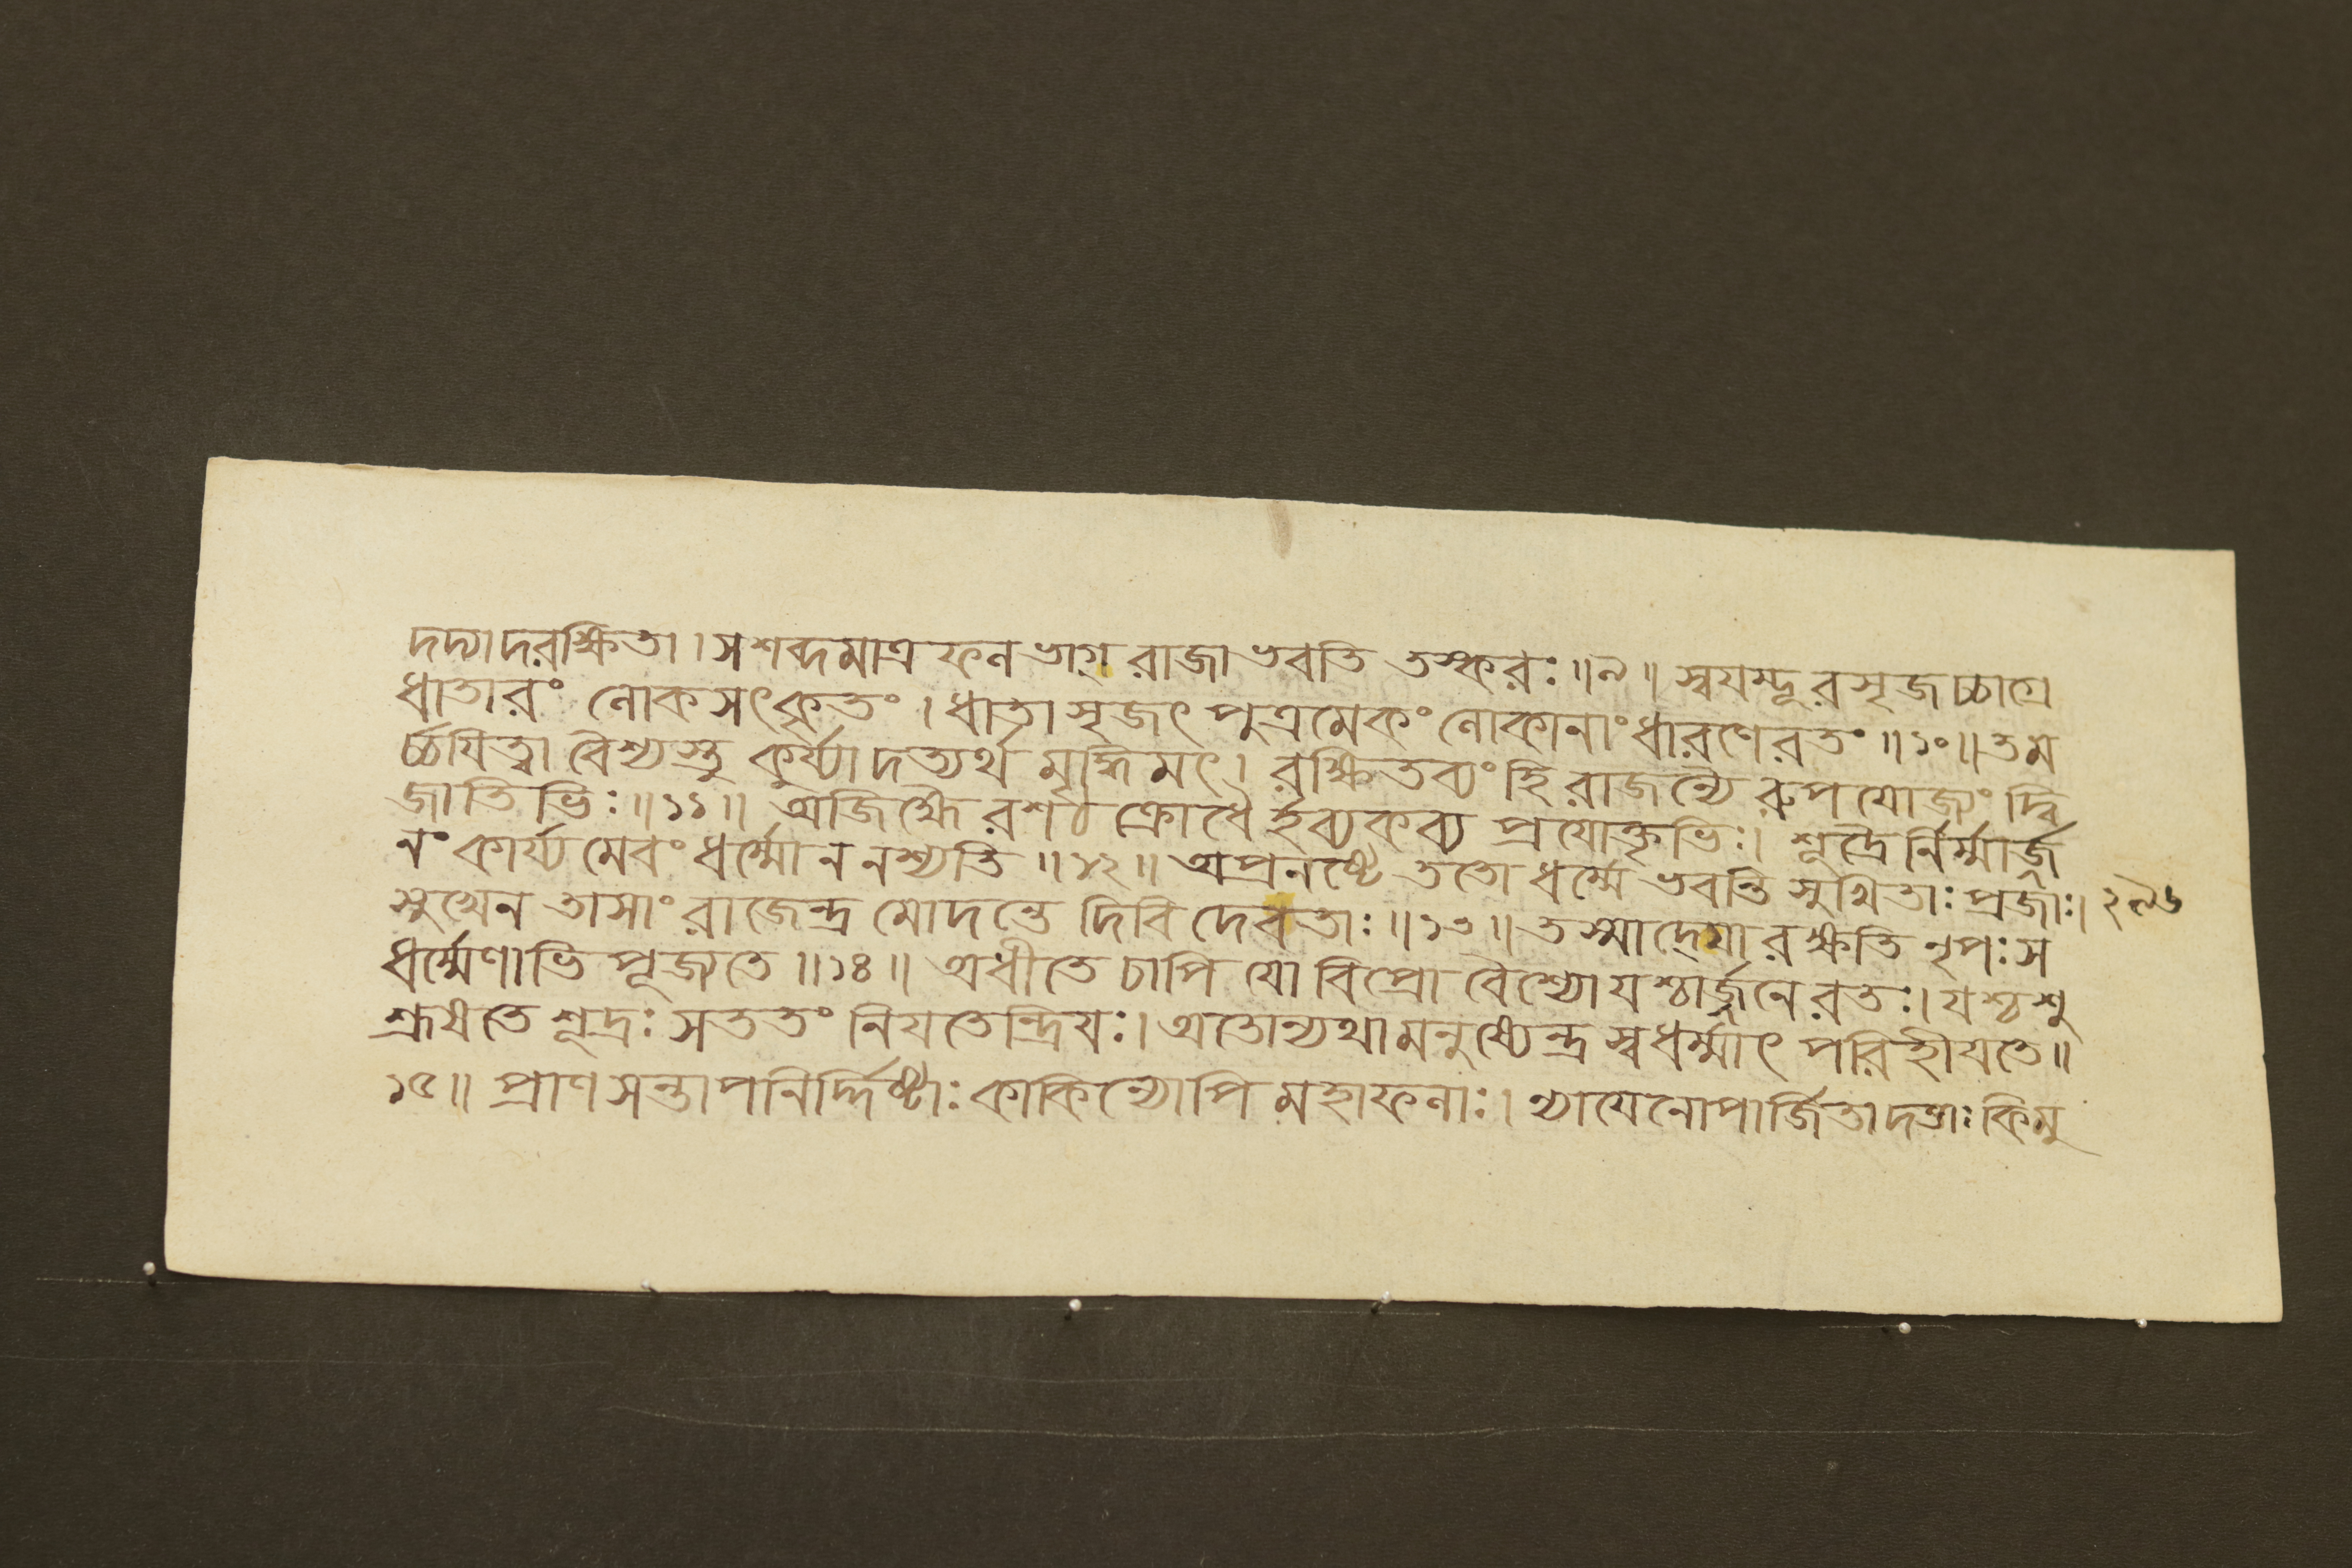 দদ্যাদরক্ষিতা। স শব্দমাত্রফলভাগ্ রাজা ভবতি তস্করঃ॥৯॥ স্বযম্ভূরসৃজচ্চাগ্রে
ধাতারং লোকসৎকৃতং। ধাতাসৃজৎ পুত্রমেকং লোকানাং ধারণে রতং॥১০॥ তম
র্চ্চযিত্বা বৈশ্যস্তু কুর্য্যাদত্যর্থমৃদ্ধিমৎ। রক্ষিতব্যং হি রাজন্যৈরুপযোজ্যং দ্বি
জাতিভিঃ॥১১॥ অজিহ্মৈরশঠক্রোধৈর্হব্যকব্যপ্রযোক্তৃভিঃ। শূদ্রৈর্নির্ম্মার্জ্জ
নং কার্য্যমেবং ধর্ম্মো ন নশ্যতি॥১২॥ অপ্রনষ্টে ততো ধর্ম্মে ভবন্তি সুখিতাঃ প্রজাঃ। ২৯৬
সুখেন তাসাং রাজেন্দ্র মোদন্তে দিবি দেবতাঃ॥১৩॥ তস্মাদ্যো রক্ষতি নৃপঃ স
ধর্ম্মেণাভিপূজ্যতে॥১৪॥ অধীতে চাপি যো বিপ্রো বৈশ্যো যশ্চার্জ্জনে রতঃ। যশ্চ শু
শ্রূষতে শূদ্রঃ সততং নিযতেন্দ্রিযঃ। অতোন্যথা মনুষ্যেন্দ্র স্বধর্ম্মাৎ পরিহীযতে॥
১৫॥ প্রাণসন্তাপনির্দ্দিষ্টাঃ কাকিন্যোপি মহাফলাঃ। ন্যাযেনোপার্জিতা দত্তাঃ কিমু